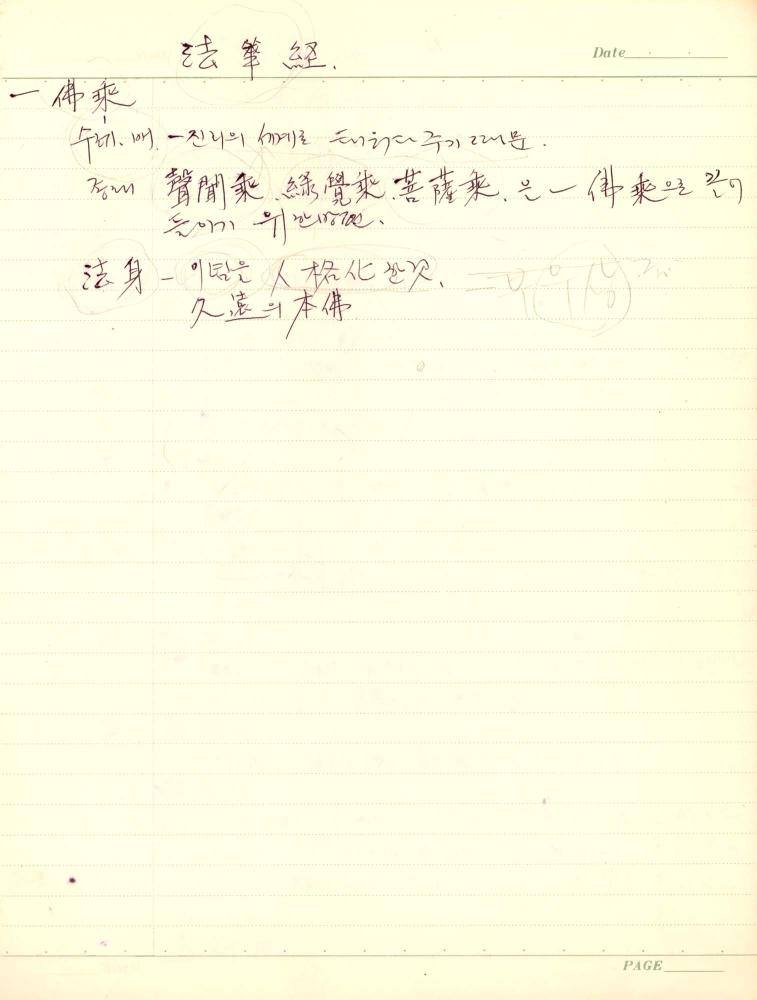 法華経.
Date
一佛乘
수레. 배. -진리의 세계로 태워다 주기 때문.
종래 聲聞乘. 緣覺乘. 菩薩乘. 은 一佛乘으로 끌어
들이기 위한 방편.
法身 - 이팀을 人格化 한것.
久遠의 本佛
PAGE